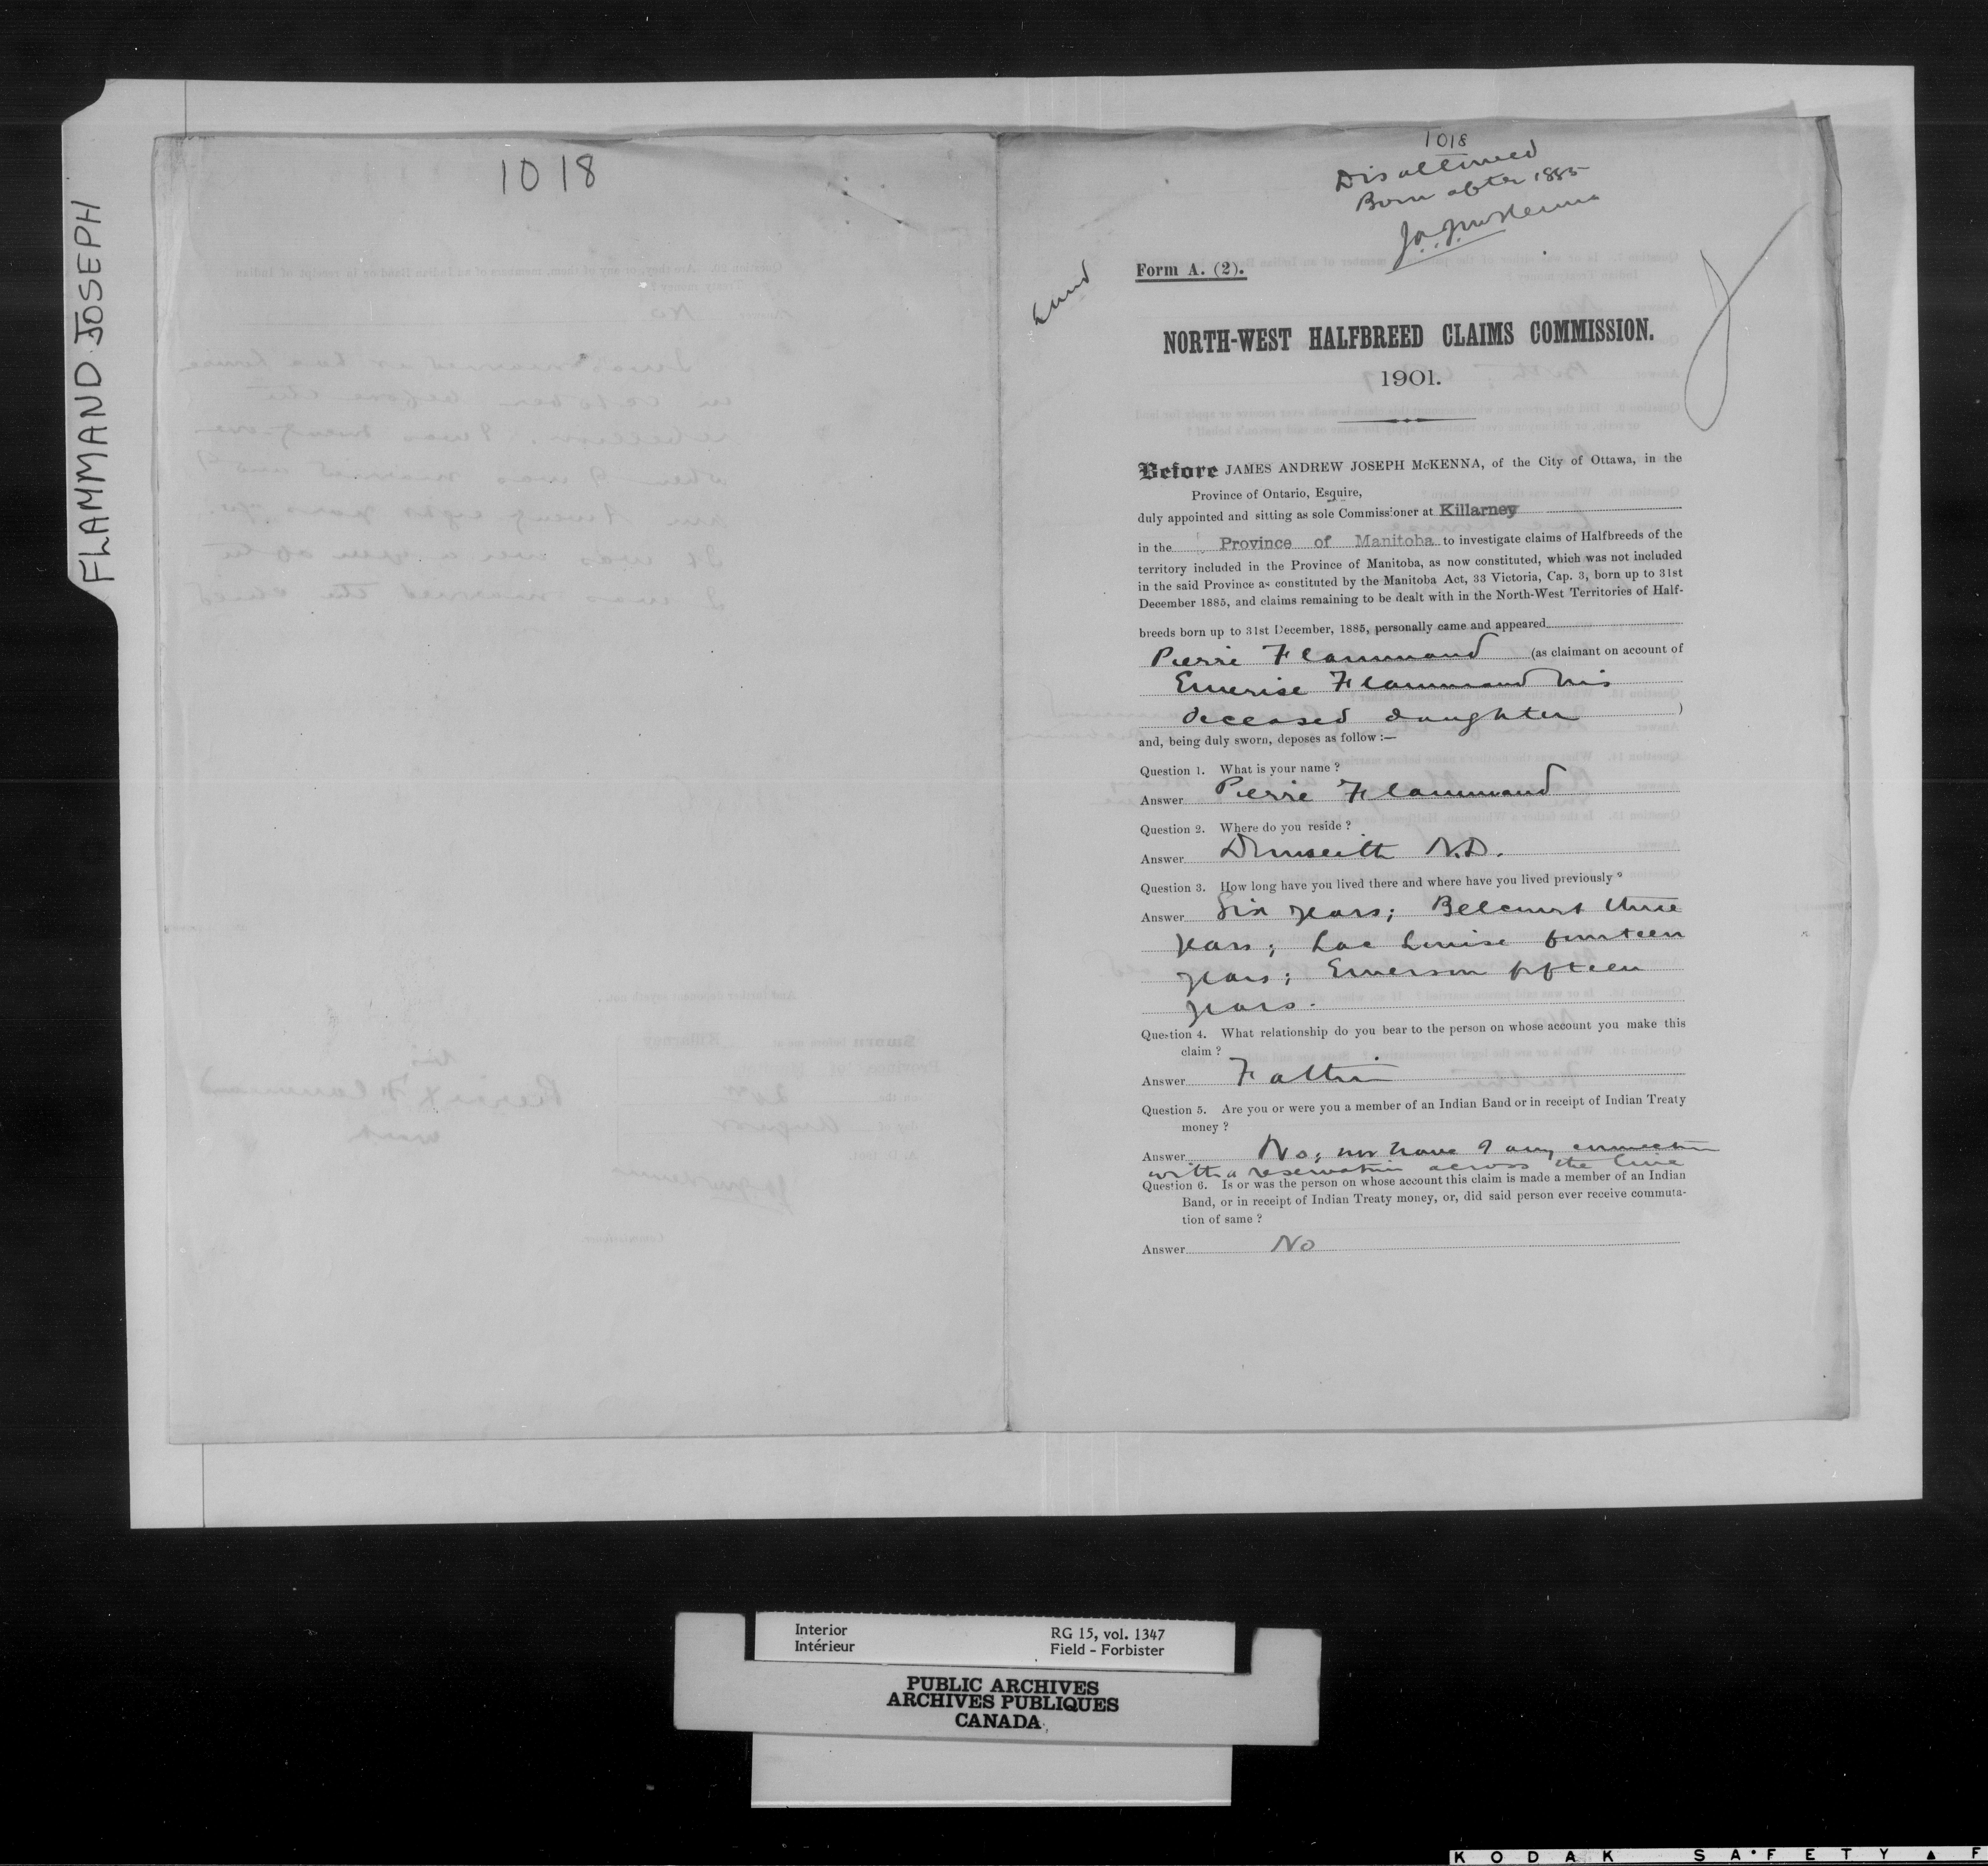 FLAMMAND JOSEPH
1018
1018
Disallowed
Born after 1885
J.A.J. McKenna
Form A. (2).
NORTH-WEST HALFBREED CLAIMS COMMISSION.
1901.
Before JAMES ANDREW JOSEPH McKENNA, of the City of Ottawa, in the
Province of Ontario, Esquire,
duly appointed and sitting as sole Commissioner at Killarney
in the Province of Manitoba to investigate claims of Halfbreeds of the
territory included in the Province of Manitoba, as now constituted, which was not included
in the said Province as constituted by the Manitoba Act, 33 Victoria, Cap. 3, born up to 31st
December 1885, and claims remaining to be dealt with in the North-West Territories of Half-
breeds born up to 31st December, 1885, personally came and appeared
Pierre Flammand (as claimant on account of
Emerise Flammand his
deceased daughter )
and, being duly sworn, deposes as follow :—
Question 1. What is your name ?
Answer Pierre Flammand
Question 2. Where do you reside ?
Answer Dunseith N.D.
Question 3. How long have you lived there and where have you lived previously ?
Answer Six years; Belcourt three
years; Lac Louise fourteen
years; Emerson fifteen
years.
Question 4. What relationship do you bear to the person on whose account you make this
claim ?
Answer Father
Question 5. Are you or were you a member of an Indian Band or in receipt of Indian Treaty
money ?
Answer No; nor have I any connection
with a reservation across the line
Question 6. Is or was the person on whose account this claim is made a member of an Indian
Band, or in receipt of Indian Treaty money, or, did said person ever receive commuta-
tion of same ?
Answer No
Interior RG 15, vol. 1347
Intérieur Field - Forbister
PUBLIC ARCHIVES
ARCHIVES PUBLIQUES
CANADA
KODAK SAFETY ▲ F